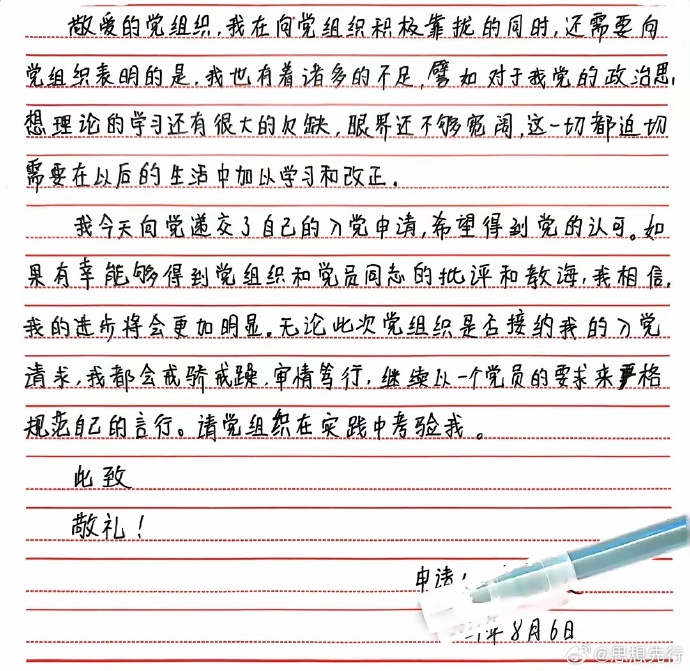 敬爱的党组织,我在向党组织积极靠拢的同时,还需要向
党组织表明的是,我也有着诸多的不足,譬如对于我党的政治思
想理论的学习还有很大的欠缺,眼界还不够宽阔,这一切都迫切
需要在以后的生活中加以学习和改正.
我今天向党递交了自己的入党申请,希望得到党的认可。如
果有幸能够得到党组织和党员同志的批评和教诲,我相信,
我的进步将会更加明显.无论此次党组织是否接纳我的入党
请求,我都会戒骄戒躁,审情笃行,继续以一个党员的要求来严格
规范自己的言行。请党组织在实践中考验我。
此致
敬礼!
申请
年8月6日
@思想先行